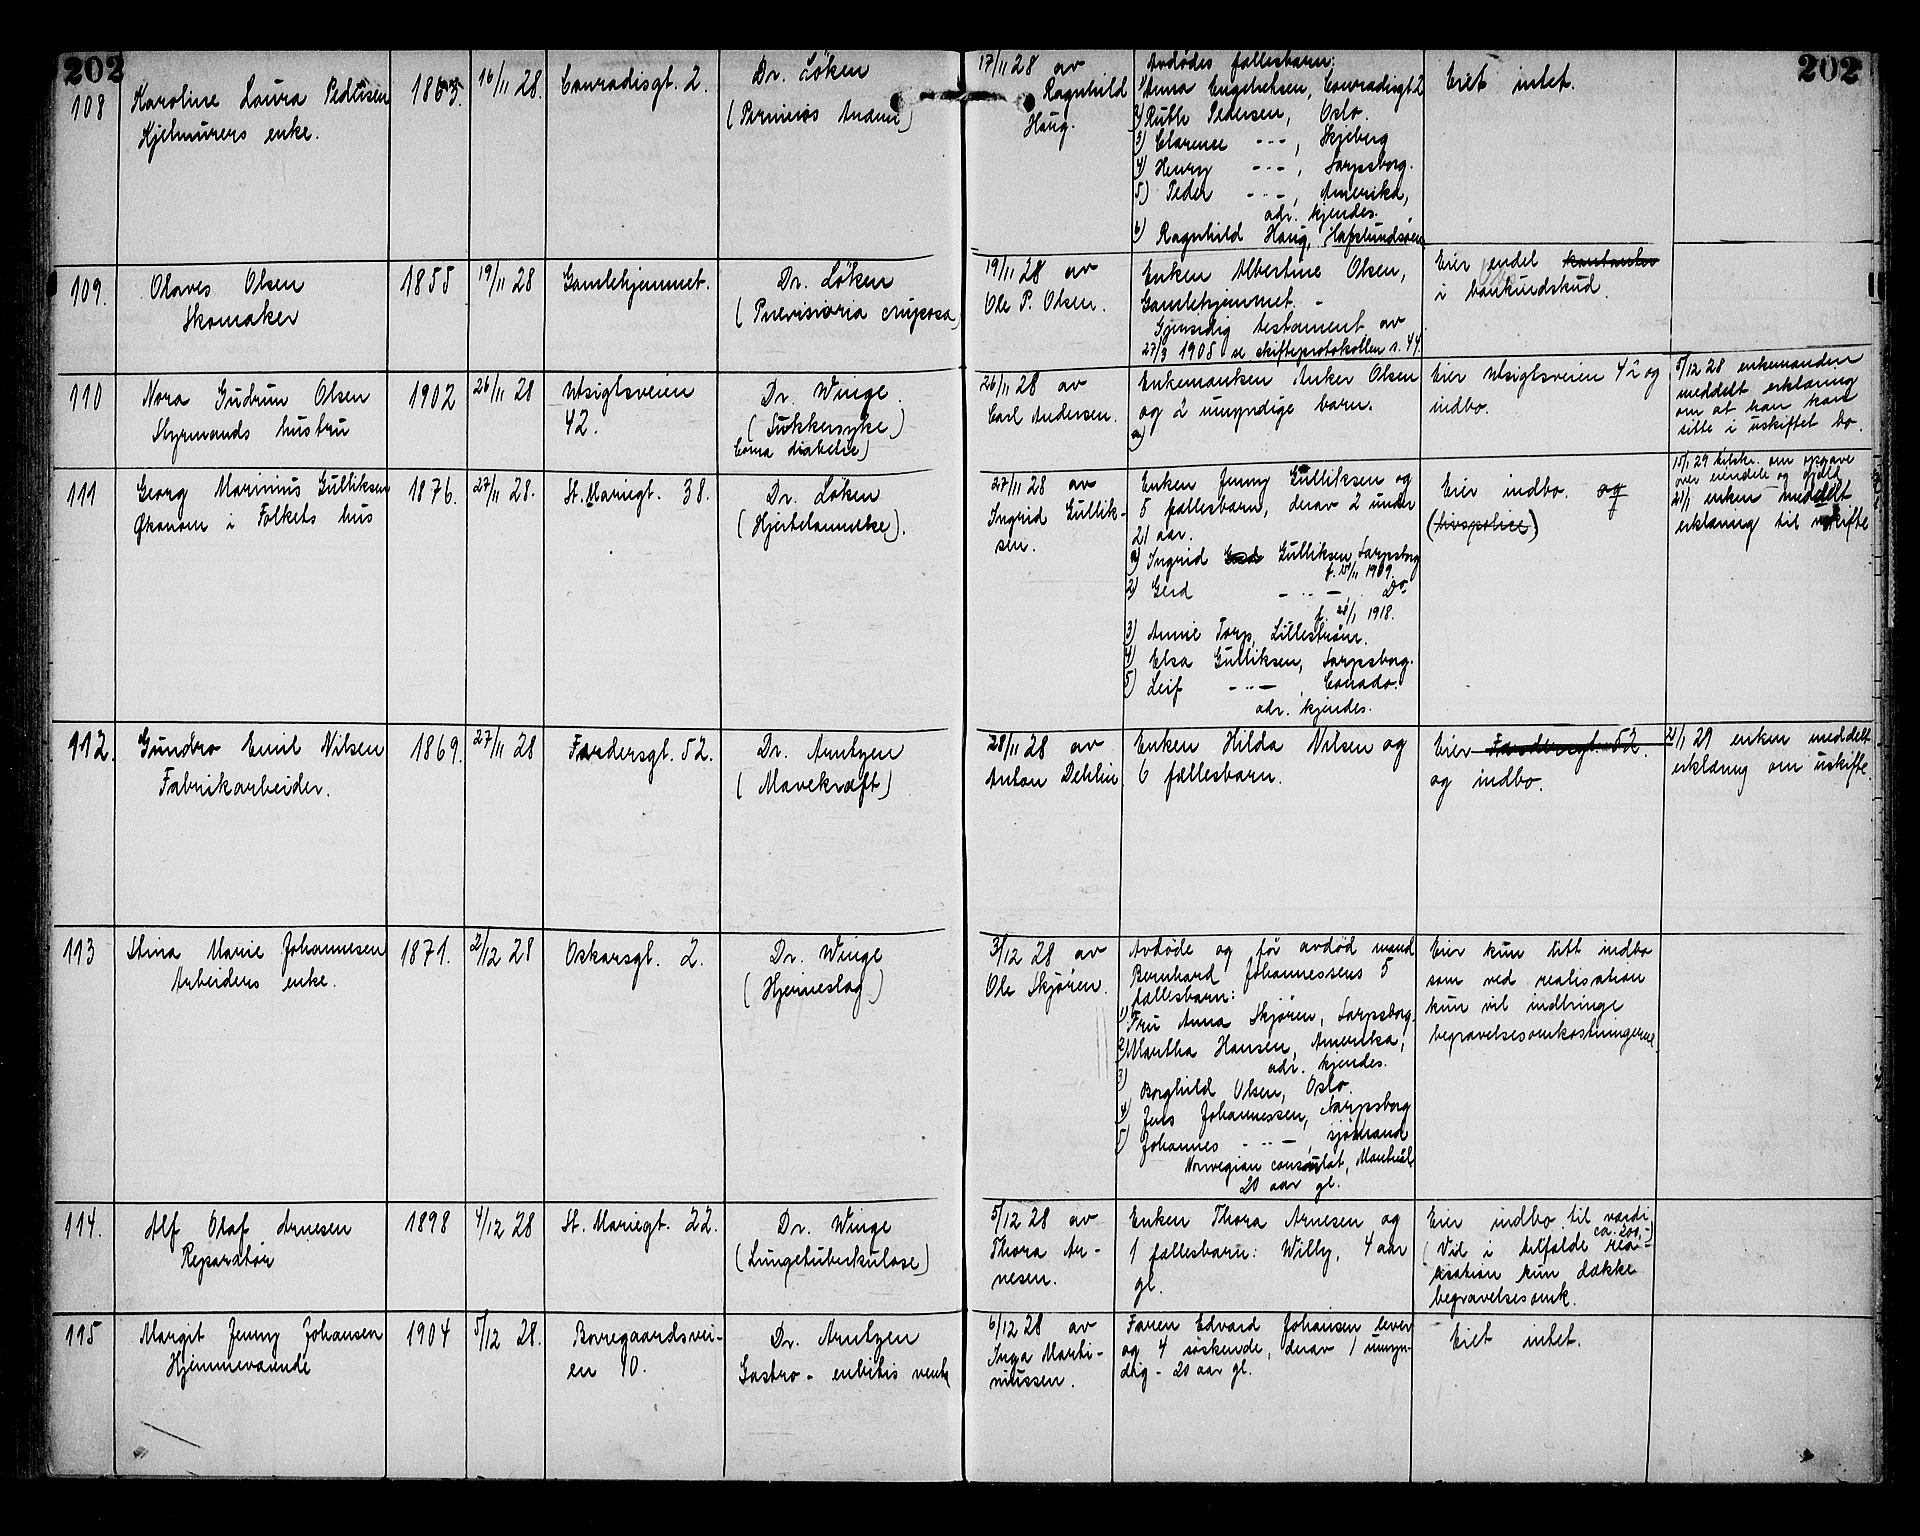 202
202
108
Karoline Laura Pedersen
Kjelmurers enke.
1863.
16/11 28.
Conradisgt. 2.
Dr. Löken
(Perniciøs Anemi)
17/11 28 av
Ragnhild
Haug.
Avdødes fællesbarn:
1) Anna Engebretsen, Conradisgt 2
2) Ruth Pedersen, Oslo.
3) Clarence -"-, Skjeberg
4) Henry -"-, Sarpsborg.
5) Peder -"-, Amerika,
adr. kjendes.
6) Ragnhild Haug, Hafslundsøen
Eiet intet.
109.
Olaves Olsen
Skomaker
1855
19/11 28
Gamlehjemmet.
Dr. Löken
19/11 28 av
Ole P. Olsen.
Enken Albertine Olsen,
Gamlehjemmet. -
Gjensidig testament av
27/3 1905 se skifteprotokollen s. 44.
Eier endel kontanter
i bankindskud.
110
Nora Gudrun Olsen
Styrmands hustru
1902
26/11 28
Utsigtsveien
42.
Dr. Winge.
(Sukkersyke)
Coma diabetie)
26/11 28 av
Carl Andersen.
Enkemanken Anker Olsen
og 2 umyndige barn.
a)
Eier Utsigtsveien 42 og
indbo.
5/12 28 enkemanden
meddelt erklæring
om at han kan
sitte i uskiftet bo.
111
Georg Marinius Gulliksen
Økonom i Folkets hus
1876.
27/11 28.
St. Mariegt. 38.
Dr. Löken
(Hjertelammelse).
27/11 28 av
Ingrid Gullik-
sen.
Enken Jenny Gulliksen og
5 fællesbarn, derav 2 under
21 aar.
1) Ingrid Gulliksen, Sarpsborg
f. 15/11 1909.
2) Gerd -"-, Do.
f. 28/1 1918.
3) Annie Torp, Lillestrøm.
4) Elsa Gulliksen, Sarpsborg.
5) Leif -"-, Canada.
adr. kjendes.
Eier indbo. og
(livspolice)
15/1 29 tilskr. om opgave
over eiendele og gjeld
21/1 enken meddelt
erklæring til uskifte
112.
Gunbro Emil Nilsen
Fabrikarbeider.
1869.
27/11 28
Færdersgt. 52.
Dr. Arntzen
(Mavekræft)
28/11 28 av
Anton Dehlin
Enken Hilda Nilsen og
6 fællesbarn.
Eier Færdersgt. 52.
og indbo.
21/1 29 enken meddelt
erklæring om uskifte.
113
Stina Marie Johannesen
Arbeiders enke.
1871.
2/12 28
Oskarsgt. 2.
Dr. Winge
(Hjerneslag)
3/12 28 av
Ole Skjøren.
Avdøde og før avdød mand
Bernhard Johannessens 5
fællesbarn:
1) Fru Anna Skjøren, Sarpsborg.
2) Martha Hansen, Amerika,
adr. kjendes.
3) Borghild Olsen, Oslo.
4) Jens Johannessen, Sarpsborg
5) Johannes -"-, sjømand
Norwegian consulat, Montreal
20 aar gl.
Eier kun litt indbo
som ved realisation
kun vil indbringe
begravelsesomkostningerne.
114.
Alf Olaf Arnesen
Reparatør
1898
4/12 28
St. Mariegt. 22.
Dr. Winge
(Lungetuberkulose)
5/12 28 av
Thora Ar-
nesen.
Enken Thora Arnesen og
1 fællesbarn: Willy, 4 aar
gl.
Eier indbo til værdi
ca. 200,-)
(Vil i tilfælde rea-
lisation kun dække
begravelsesomk.
115
Margit Jenny Johansen
Hjemmeværende
1904
5/12 28.
Borregaardsvei-
en 10.
Dr. Arntzen
Gastro-enteritis
6/12 28 av
Inga Marti-
niussen.
Faren Edvard Johansen lever
og 4 søskende, derav 1 umyn-
dig - 20 aar gl.
Eiet intet.